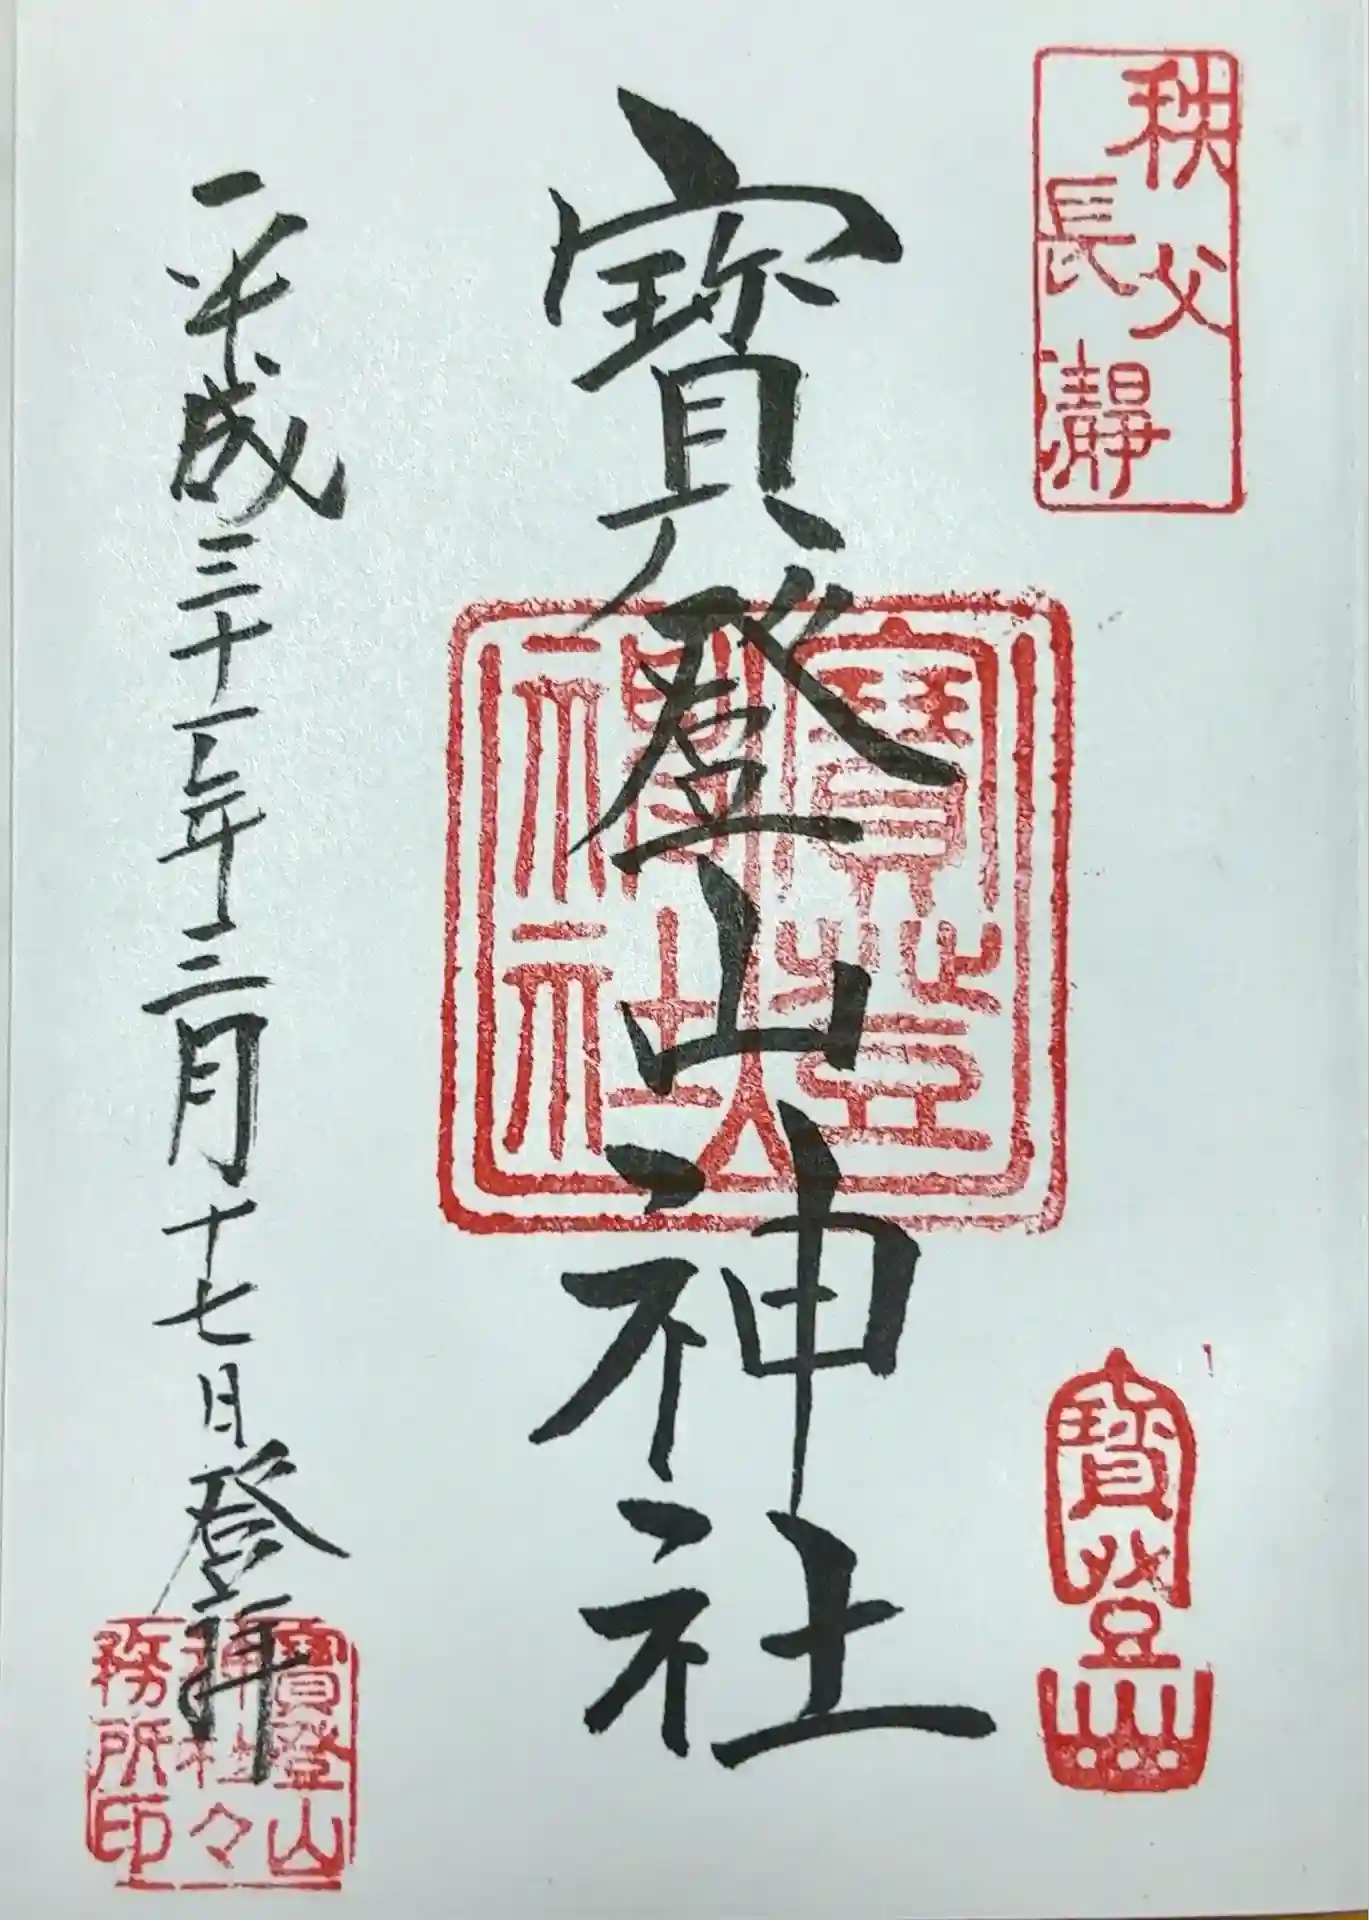 秩父
長瀞
寶登山神社
寶登山神社
寶登山
平成三十一年三月十七日登拝
寶登山
神社々
務所印